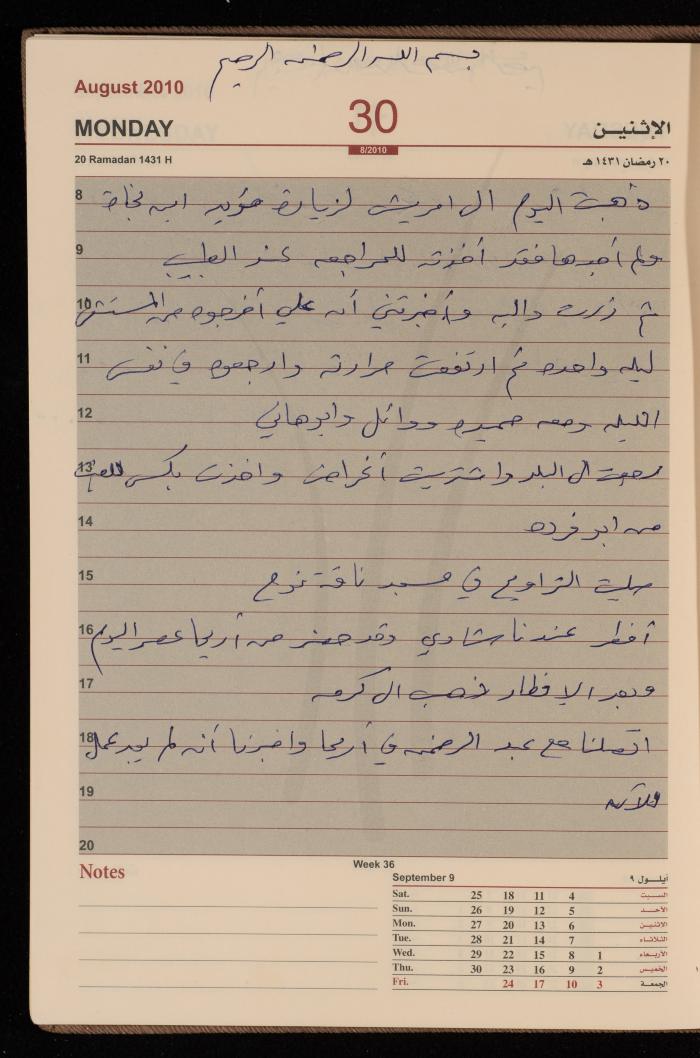 بسم الله الرحمن الرحيم
August 2010
30
MONDAY
الإثنين
8/2010
20 Ramadan 1431 H
٢٠ رمضان ١٤٣١ هـ
8 ذهبت اليوم الى امريش لزيارة مؤيد ابن نجاة
9 ولم أجدها فقد أخذته للمراجعه عند الطبيب
10 ثم زرت والبه وأخبرتني أن علي أخرجوه من المستشفى
11 ليله واحده ثم ارتفعت حرارته وارجعوه في نفس
12 الليله ومعه حميده ووائل وابوهاني
13 رجعت الى البلد واشتريت أغراض واخذت بكس
14 من ابو فرده
15 صليت التراويح في مسجد ناقة نوح
16 أفطر عندنا شادي وقد حضر من أريحا عصر اليوم
17 وبعد الإفطار ذهب الى كرمه
18 اتصلنا مع عبد الرحمن في أريحا واخبرنا أنه لم يجد عمل
19 للآن
20
Notes
Week 36
September 9
أيلـول ٩
Sat. 25 18 11 4 السبت
Sun. 26 19 12 5 الأحد
Mon. 27 20 13 6 الاثنين
Tue. 28 21 14 7 الثلاثاء
Wed. 29 22 15 8 1 الأربعاء
Thu. 30 23 16 9 2 الخميس
Fri. 24 17 10 3 الجمعة